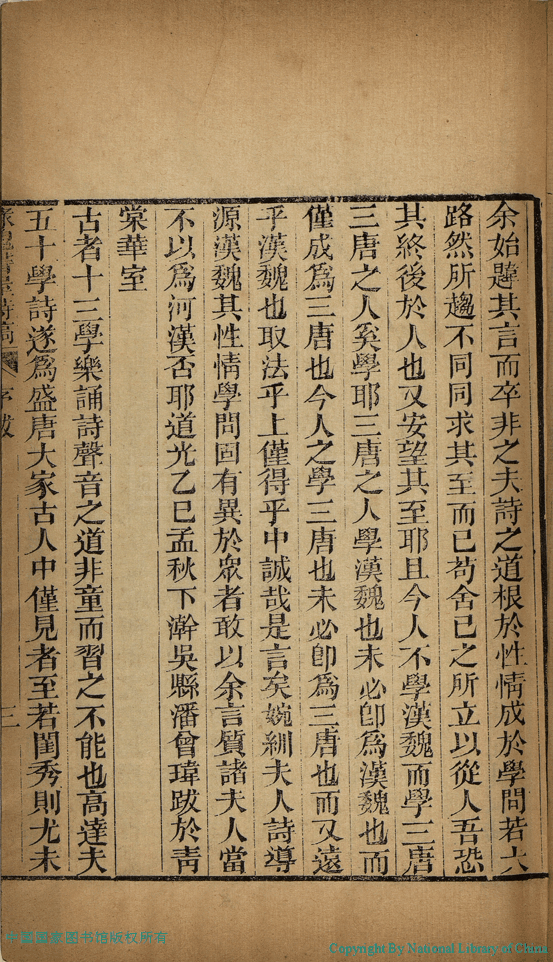 余始韙其言而卒非之夫詩之道根於性情成於學問若夫
路然所趨不同同求其至而已苟舍已之所立以從人吾恐
其終後於人也又安望其至耶且今人不學漢魏而學三唐
三唐之人奚學耶三唐之人學漢魏也未必卽爲漢魏也而
僅成爲三唐也今人之學三唐也未必卽爲三唐也而又遠
乎漢魏也取法乎上僅得乎中誠哉是言矣婉紃夫人詩導
源漢魏其性情學問固有異於眾者敢以余言質諸夫人當
不以爲河漢否耶道光乙巳孟秋下澣吳縣潘曾瑋跋於靑
棠華室
古者十三學樂誦詩聲音之道非童而習之不能也高達夫
五十學詩遂爲盛唐大家古人中僅見者至若閨秀則尤未
序跋
三
中国国家图书馆版权所有
Copyright By National Library of China